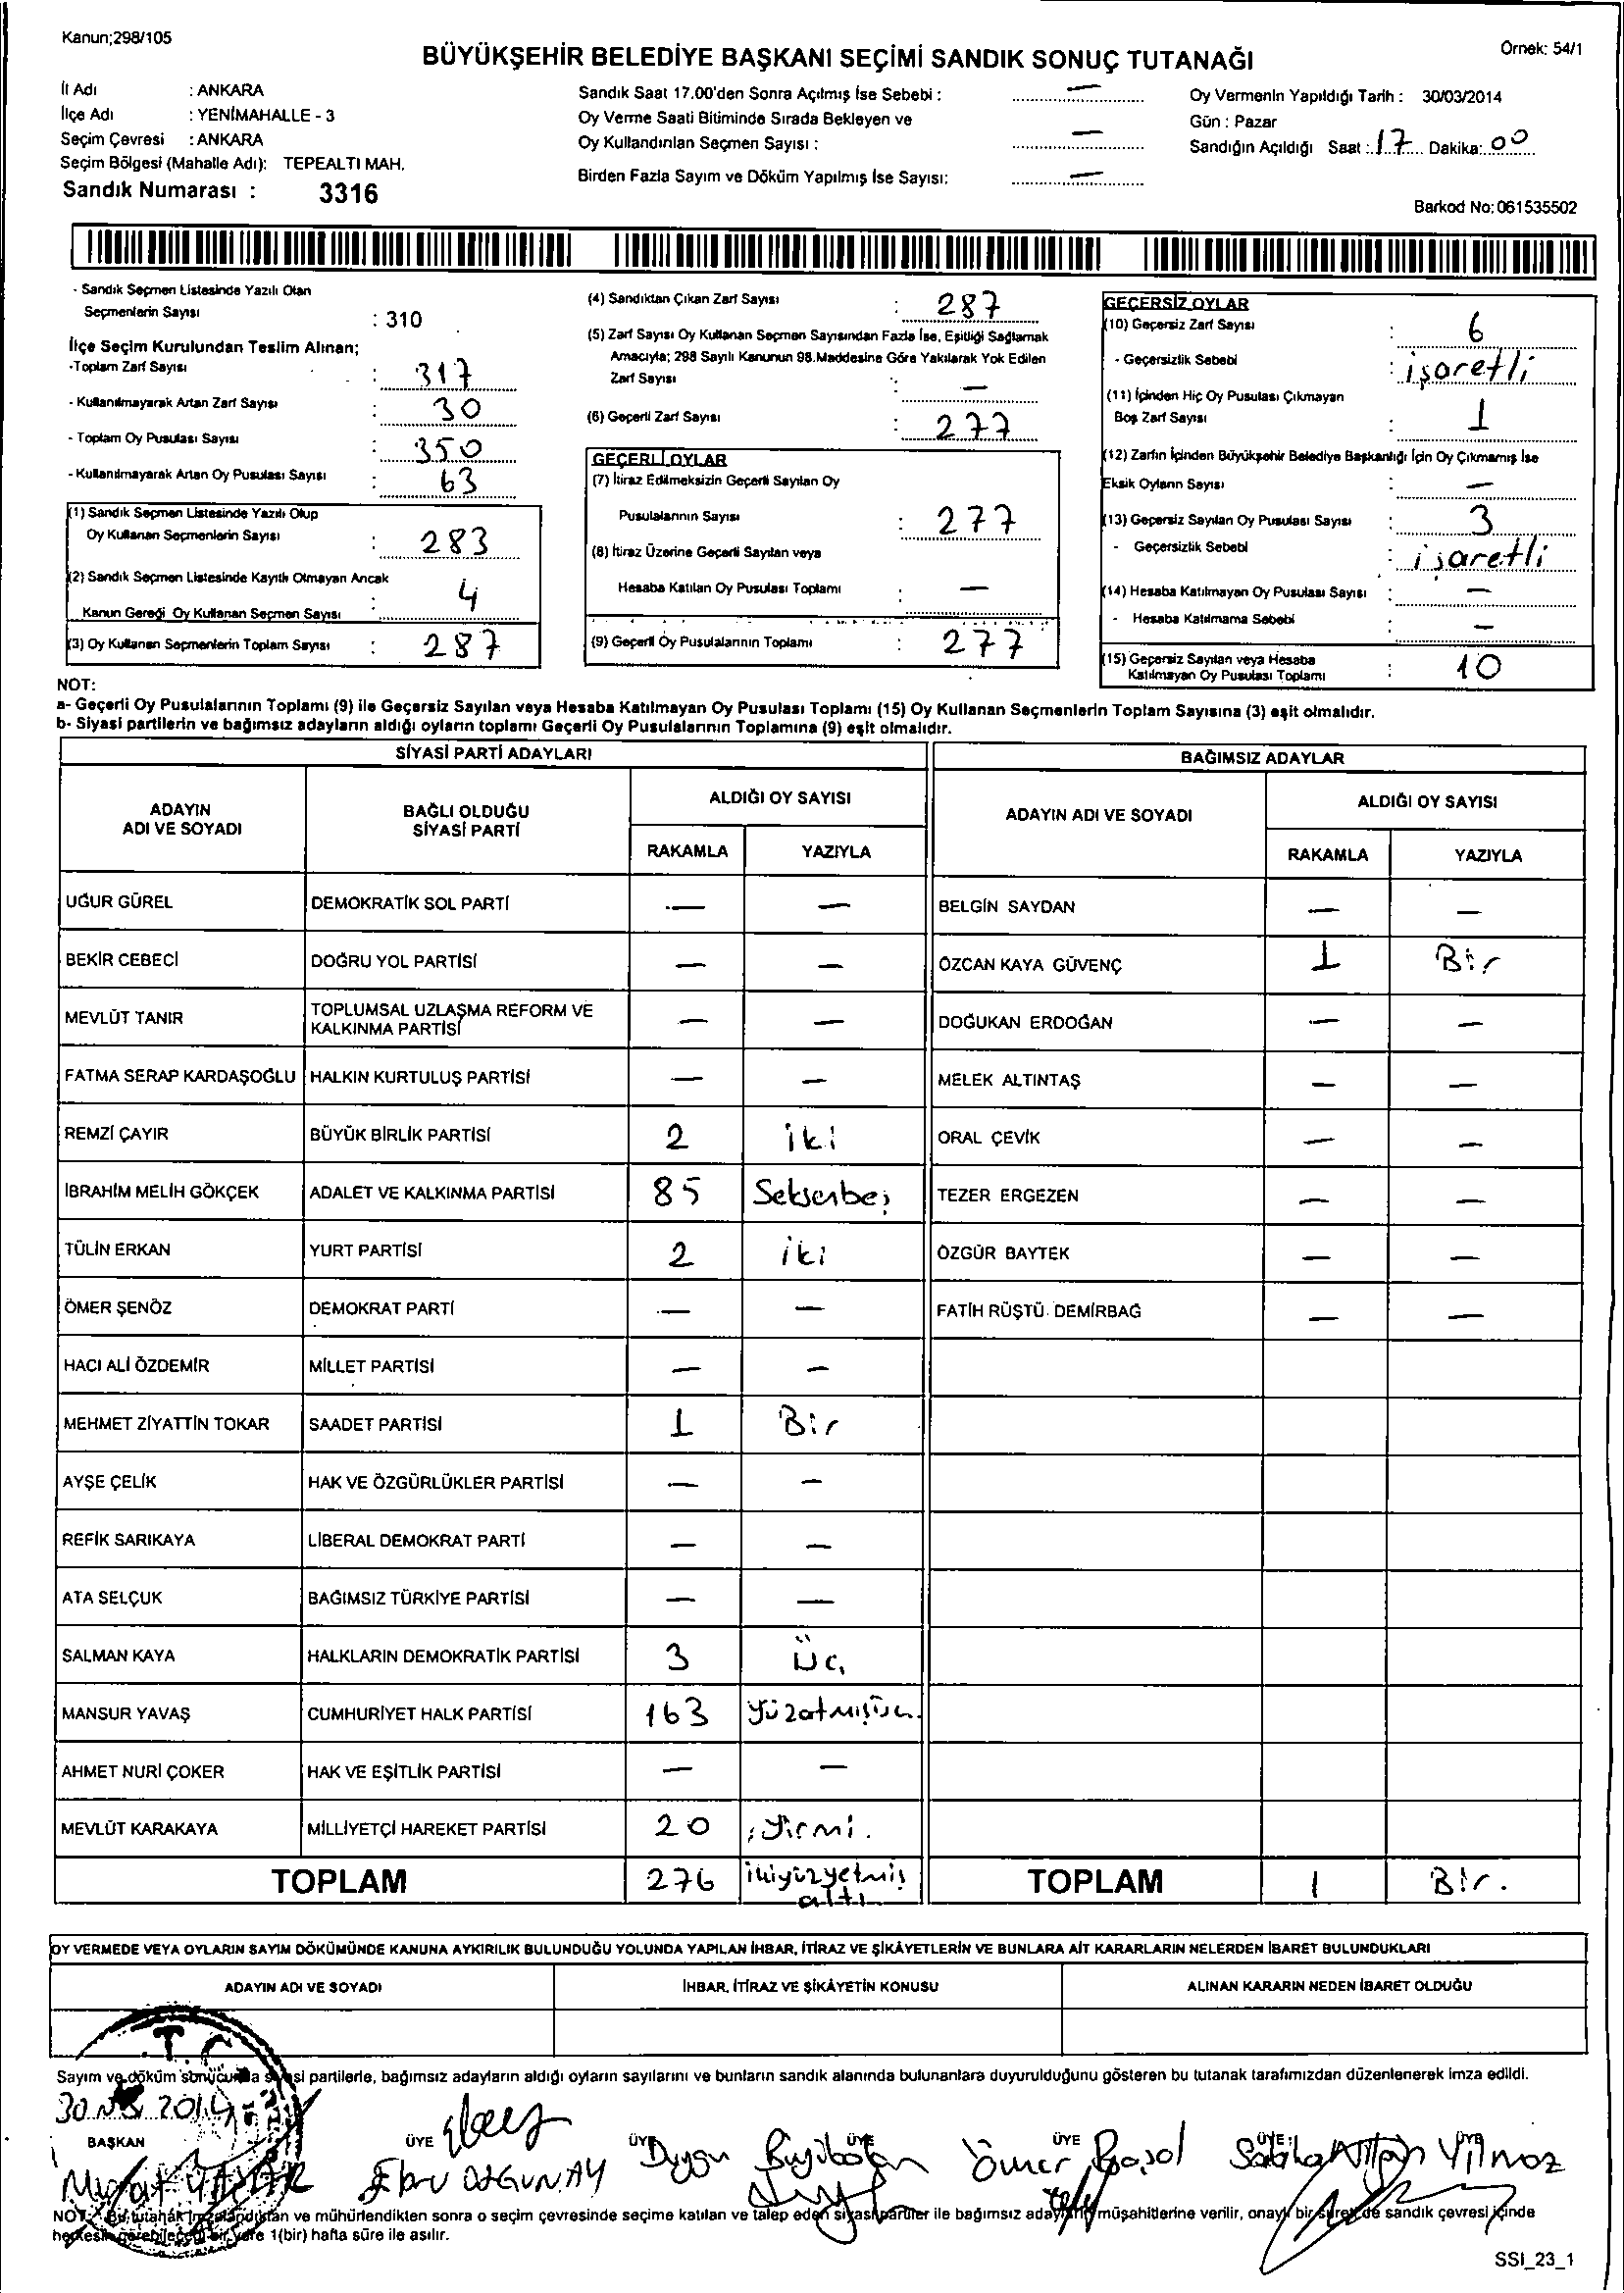 Kanun;298/105
Örnek: 54/1
BÜYÜKŞEHİR BELEDİYE BAŞKANI SEÇİMİ SANDIK SONUÇ TUTANAĞI
İl Adı : ANKARA
İlçe Adı : YENİMAHALLE - 3
Seçim Çevresi : ANKARA
Seçim Bölgesi (Mahalle Adı): TEPEALTI MAH.
Sandık Numarası : 3316
Sandık Saat 17.00'den Sonra Açılmış İse Sebebi : —
Oy Verme Saati Bitiminde Sırada Bekleyen ve
Oy Kullandırılan Seçmen Sayısı : —
Birden Fazla Sayım ve Döküm Yapılmış İse Sayısı: —
Oy Vermenin Yapıldığı Tarih : 30/03/2014
Gün : Pazar
Sandığın Açıldığı Saat : 17 Dakika: 00
Barkod No: 061535502
- Sandık Seçmen Listesinde Yazılı Olan
Seçmenlerin Sayısı : 310
İlçe Seçim Kurulundan Teslim Alınan;
-Toplam Zarf Sayısı : 317
- Kullanılmayarak Artan Zarf Sayısı : 30
- Toplam Oy Pusulası Sayısı : 350
- Kullanılmayarak Artan Oy Pusulası Sayısı : 63
(1) Sandık Seçmen Listesinde Yazılı Olup
Oy Kullanan Seçmenlerin Sayısı : 283
(2) Sandık Seçmen Listesinde Kayıtlı Olmayan Ancak
Kanun Gereği Oy Kullanan Seçmen Sayısı : 4
(3) Oy Kullanan Seçmenlerin Toplam Sayısı : 287
(4) Sandıktan Çıkan Zarf Sayısı : 287
(5) Zarf Sayısı Oy Kullanan Seçmen Sayısından Fazla İse, Eşitliği Sağlamak
Amacıyla; 298 Sayılı Kanunun 98.Maddesine Göre Yakılarak Yok Edilen
Zarf Sayısı : —
(6) Geçerli Zarf Sayısı : 277
GEÇERLİ OYLAR
(7) İtiraz Edilmeksizin Geçerli Sayılan Oy
Pusulalarının Sayısı : 277
(8) İtiraz Üzerine Geçerli Sayılan veya
Hesaba Katılan Oy Pusulası Toplamı : —
(9) Geçerli Oy Pusulalarının Toplamı : 277
GEÇERSİZ OYLAR
(10) Geçersiz Zarf Sayısı : 6
- Geçersizlik Sebebi : işaretli
(11) İçinden Hiç Oy Pusulası Çıkmayan
Boş Zarf Sayısı : 1
(12) Zarfın İçinden Büyükşehir Belediye Başkanlığı İçin Oy Çıkmamış İse
Eksik Oyların Sayısı : —
(13) Geçersiz Sayılan Oy Pusulası Sayısı : 3
- Geçersizlik Sebebi : işaretli
(14) Hesaba Katılmayan Oy Pusulası Sayısı : —
- Hesaba Katılmama Sebebi : —
(15) Geçersiz Sayılan veya Hesaba
Katılmayan Oy Pusulası Toplamı : 10
NOT:
a- Geçerli Oy Pusulalarının Toplamı (9) ile Geçersiz Sayılan veya Hesaba Katılmayan Oy Pusulası Toplamı (15) Oy Kullanan Seçmenlerin Toplam Sayısına (3) eşit olmalıdır.
b- Siyasi partilerin ve bağımsız adayların aldığı oyların toplamı Geçerli Oy Pusulalarının Toplamına (9) eşit olmalıdır.
SİYASİ PARTİ ADAYLARI
BAĞIMSIZ ADAYLAR
ADAYIN ADI VE SOYADI
BAĞLI OLDUĞU SİYASİ PARTİ
ALDIĞI OY SAYISI
RAKAMLA YAZIYLA
ADAYIN ADI VE SOYADI
ALDIĞI OY SAYISI
RAKAMLA YAZIYLA
UĞUR GÜREL DEMOKRATİK SOL PARTİ — — BELGİN SAYDAN — —
BEKİR CEBECİ DOĞRU YOL PARTİSİ — — ÖZCAN KAYA GÜVENÇ 1 Bir
MEVLÜT TANIR TOPLUMSAL UZLAŞMA REFORM VE KALKINMA PARTİSİ — — DOĞUKAN ERDOĞAN — —
FATMA SERAP KARDAŞOĞLU HALKIN KURTULUŞ PARTİSİ — — MELEK ALTINTAŞ — —
REMZİ ÇAYIR BÜYÜK BİRLİK PARTİSİ 2 iki ORAL ÇEVİK — —
İBRAHİM MELİH GÖKÇEK ADALET VE KALKINMA PARTİSİ 85 Seksenbeş TEZER ERGEZEN — —
TÜLİN ERKAN YURT PARTİSİ 2 iki ÖZGÜR BAYTEK — —
ÖMER ŞENÖZ DEMOKRAT PARTİ — — FATİH RÜŞTÜ DEMİRBAĞ — —
HACI ALİ ÖZDEMİR MİLLET PARTİSİ — —
MEHMET ZİYATTİN TOKAR SAADET PARTİSİ 1 Bir
AYŞE ÇELİK HAK VE ÖZGÜRLÜKLER PARTİSİ — —
REFİK SARIKAYA LİBERAL DEMOKRAT PARTİ — —
ATA SELÇUK BAĞIMSIZ TÜRKİYE PARTİSİ — —
SALMAN KAYA HALKLARIN DEMOKRATİK PARTİSİ 3 Üç
MANSUR YAVAŞ CUMHURİYET HALK PARTİSİ 163 yüzatmışüç
AHMET NURİ ÇOKER HAK VE EŞİTLİK PARTİSİ — —
MEVLÜT KARAKAYA MİLLİYETÇİ HAREKET PARTİSİ 20 yirmi.
TOPLAM 276 ikiyüzyetmiş altı TOPLAM 1 Bir.
OY VERMEDE VEYA OYLARIN SAYIM DÖKÜMÜNDE KANUNA AYKIRILIK BULUNDUĞU YOLUNDA YAPILAN İHBAR, İTİRAZ VE ŞİKÂYETLERİN VE BUNLARA AİT KARARLARIN NELERDEN İBARET BULUNDUKLARI
ADAYIN ADI VE SOYADI İHBAR, İTİRAZ VE ŞİKÂYETİN KONUSU ALINAN KARARIN NEDEN İBARET OLDUĞU
T.C.
Sayım ve döküm sonucunda siyasi partilerle, bağımsız adayların aldığı oyların sayılarını ve bunların sandık alanında bulunanlara duyurulduğunu gösteren bu tutanak tarafımızdan düzenlenerek imza edildi.
BAŞKAN ÜYE ÜYE ÜYE ÜYE ÜYE ÜYE
Ebru Duygu Ömer Yılmaz
NOT: Bu tutanak imzalandıktan ve mühürlendikten sonra o seçim çevresinde seçime katılan ve talep eden siyasi partiler ile bağımsız aday müşahitlerine verilir, onaylı bir sureti de sandık çevresi içinde
herkesin görebileceği bir yere 1(bir) hafta süre ile asılır.
SSI_23_1